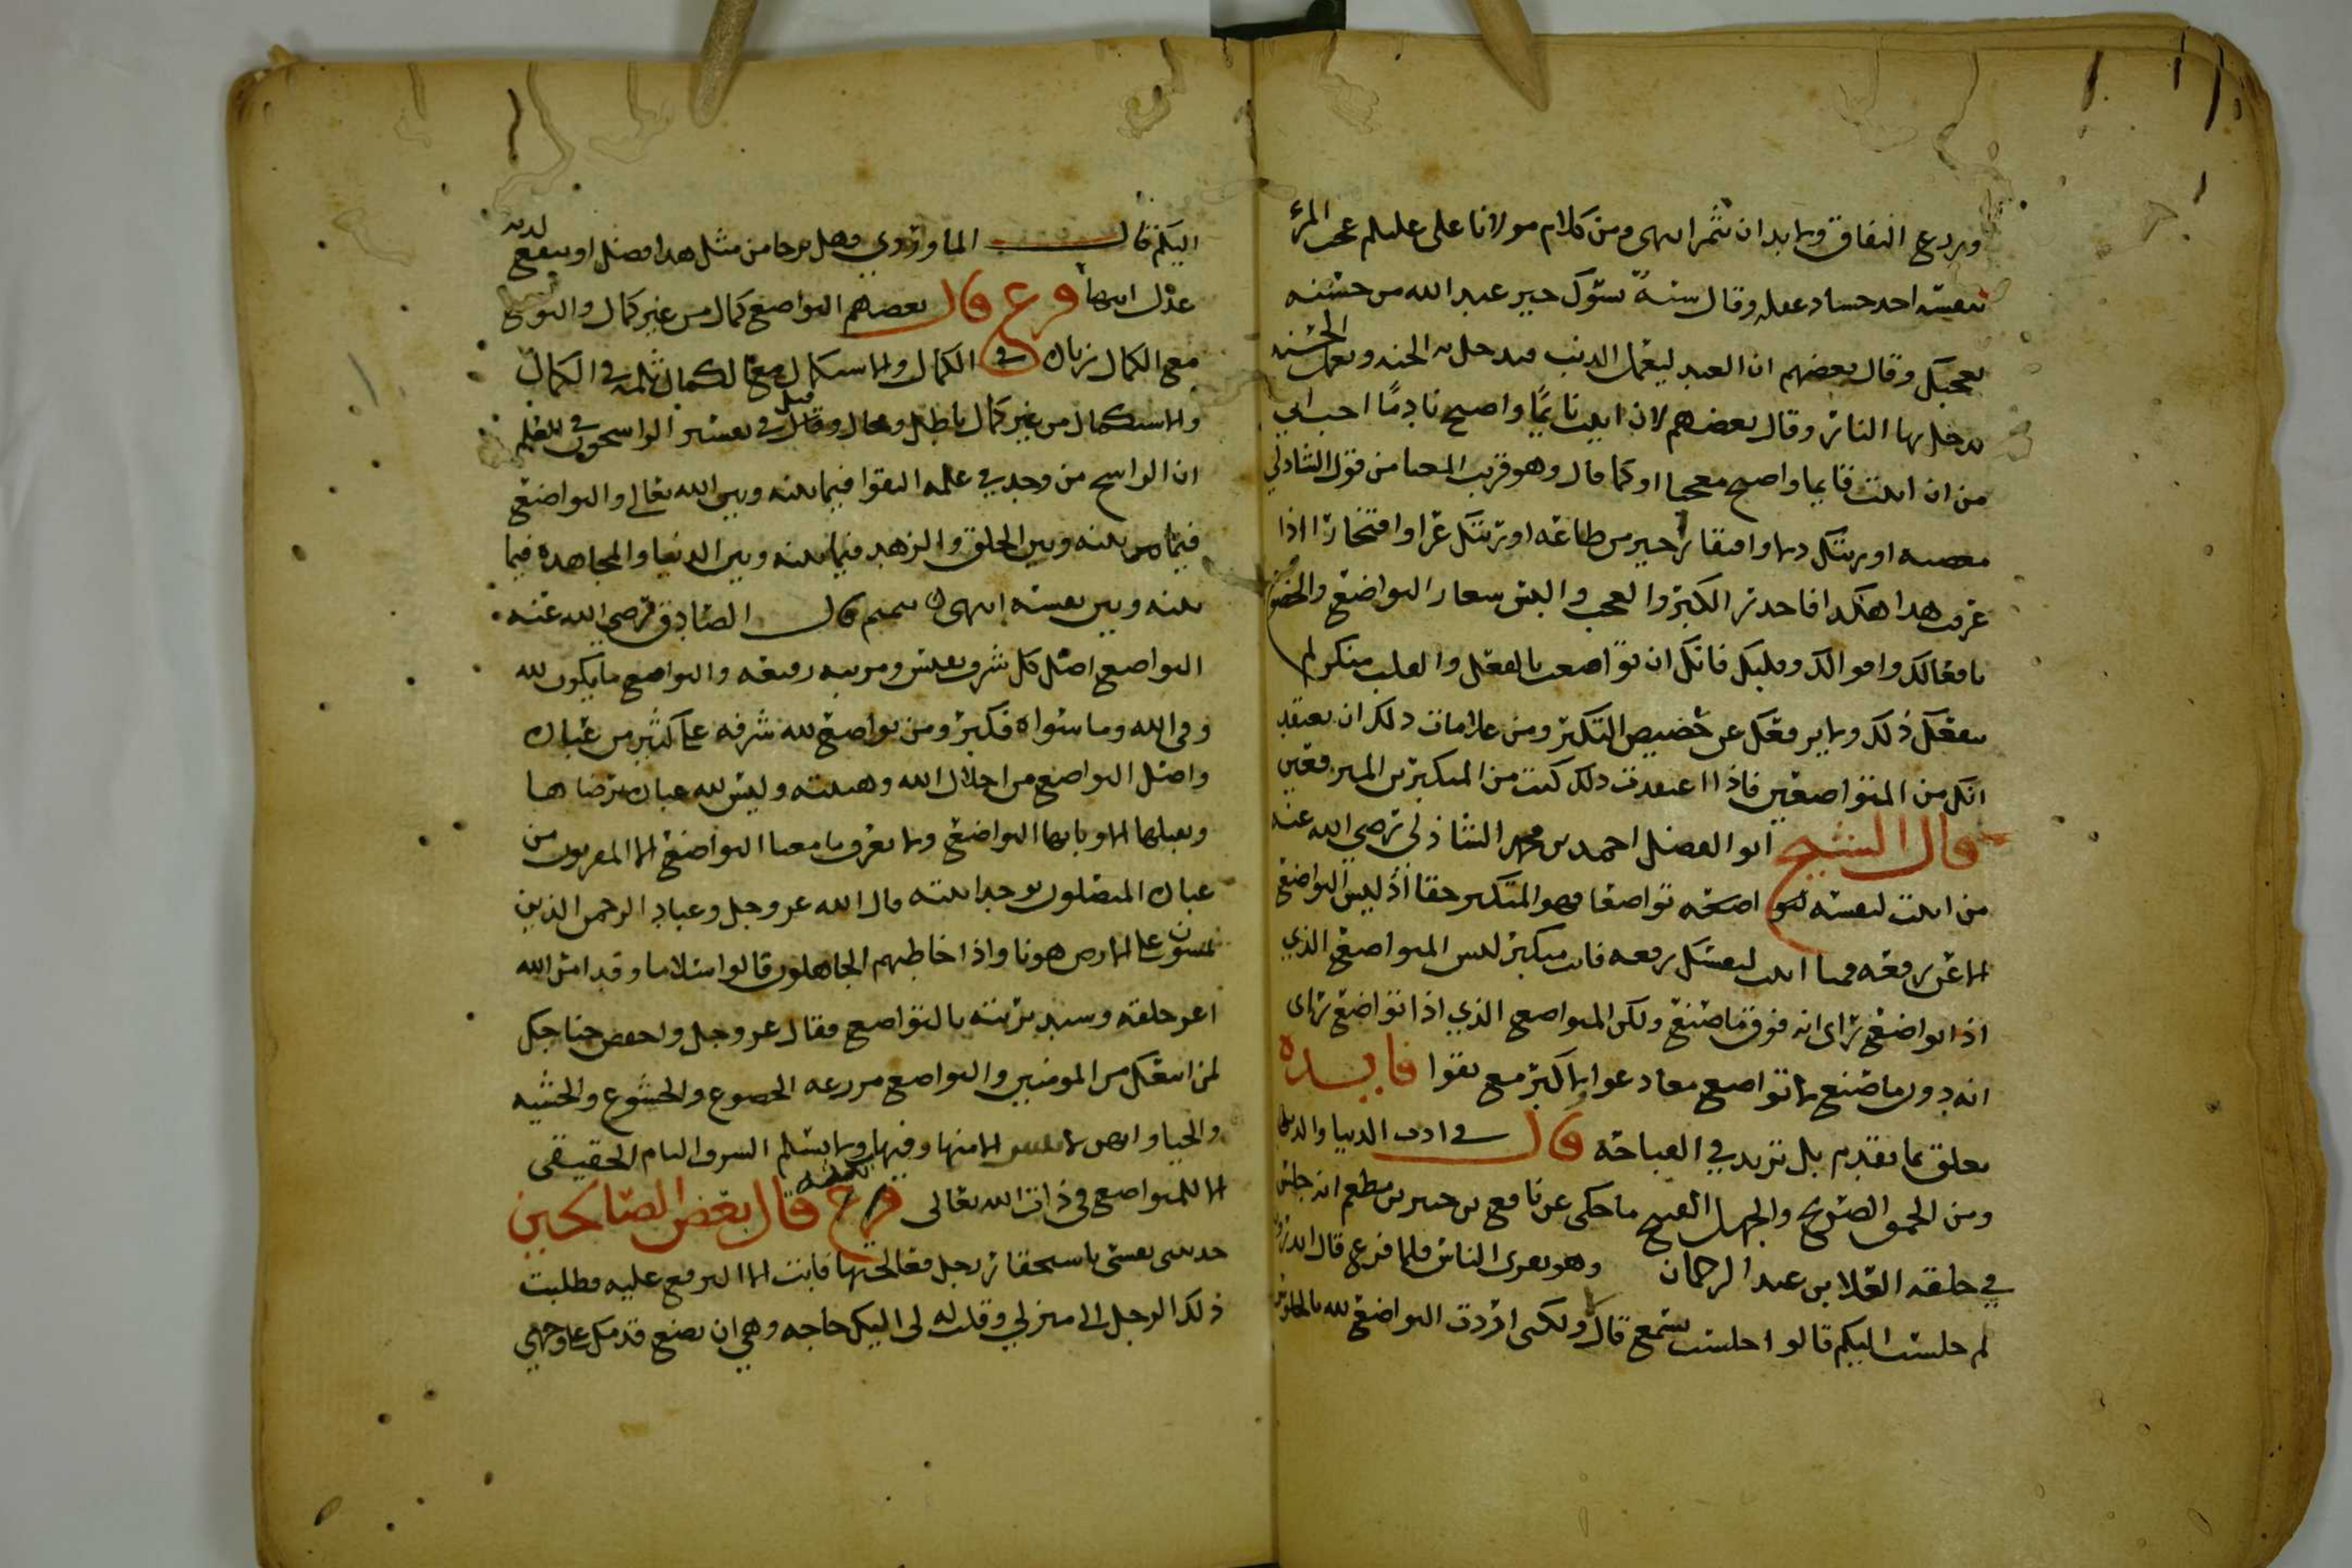 ويزرع النفاق ولا بد ان تثمر انتهى ومن كلام مولانا علي عليلم عجب المرئ
بنفسه احد حساد عقله وقال سيئة تسؤك خير عند الله من حسنه
تعجبك وقال بعضهم ان العبد ليعمل الذنب فيدخل به الجنه ويعمل الحسنه
يدخل بها النار وقال بعضهم لان ابيت نايمًا واصبح نادمًا احب الي
من ان ابيت قايما واصبح معجبا او كما قال وهو قريب المعنا من قول الشاذلي
معصيه اورثتك ذلا وافتقارا خير من طاعه اورثتك عزا وافتخارا اذا
عرفت هذا هكذا فاحذر الكبر والعجب والبس شعار التواضع والخضوع
بافعالك واقوالك وقلبك فانك ان تواضعت بالفعل والقلب منكر لم
ينفعك ذلك ولا يرفعك عن حضيض التكبر ومن علامات ذلك ان تعتقد
انك من المتواضعين فاذا اعتقدت ذلك كنت من المتكبرين المترفعين
قال الشيخ ابو الفضل احمد بن محمد الشاذلي رضي الله عنه
من اثبت لنفسه تواضعا فهو المتكبر حقا اذ ليس التواضع
الا عن رفعه فمتا اثبت لنفسك رفعه فانت متكبر ليس المتواضع الذي
اذا تواضع راى انه فوق ما صنع ولكن المتواضع الذي اذا تواضع راى
انه دون ما صنع لا تواضع مع دعوا ولا كبر مع تقوا فايده
تعلق بما تقدم بل تزيد في القباحه قال في ادب الدنيا والدين
ومن الحمق الصريح والجهل القبيح ما حكى عن نافع بن جبير بن مطعم انه جلس
في حلقه العلا بن عبد الرحمان وهو يقرى الناس فلما فرغ قال اتدرون
لم جلست اليكم قالوا جلست لتسمع قال لا ولكني اردت التواضع لله بالجلوس
اليكم قال الماوردي وهل يرجا من مثل هذا فضل او ينفع لديه
عذل انتها فرع قال بعضهم التواضع كمال من غير كمال والتواضع
مع الكمال زياده في الكمال والاستكمال مع الكمال ثلمه في الكمال
والاستكمال من غير كمال باطل ومحال وقيل في تفسير الراسخون في العلم
ان الراسخ من وجد في علمه التقوا فيما بينه وبين الله تعالى والتواضع
فيما بينه وبين الخلق والزهد فيما بينه وبين الدنيا والمجاهده فيما
بينه وبين نفسه انتهى تتميم قال الصادق رضي الله عنه
التواضع اصل كل شرف نفيس ومرتبه رفيعه والتواضع ما يكون لله
وفي الله وما سواه فكبر ومن تواضع لله شرفه على كثير من عباده
واصل التواضع من اجلال الله وهيبته وليس لله عباده يرضاها
ويقبلها الا وبابها التواضع ولا يعرف ما معنا التواضع الا المقربون من
عباده المتصلون بوحدانيته قال الله عز وجل وعباد الرحمن الذين
يمشون على الارض هونا واذا خاطبهم الجاهلون قالوا سلاما وقد امر الله
اعز خلقه وسيد بريته بالتواضع فقال عز وجل واخفض جناحك
لمن اتبعك من المومنين والتواضع مزرعه الخضوع والخشوع والخشيه
والحيا وانهن لا ينبتن الا منها وفيها ولا يسلم الشرف التام الحقيقي
الا للمتواضع في ذات الله تعالى فرع قال بعض الصالحين
حدثتني نفسي باستحقار رجل فعالجتها فابت الا الترفع عليه فطلبت
ذلك الرجل الى منزلي وقلت له لي اليك حاجه وهي ان تضع قدمك على وجهي